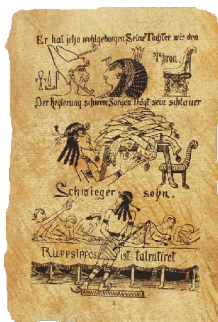 Er hat jetzo wohlgeborgen Seine Tochter wie den
Thron.
Der Regierung schwere Sorgen Trägt sein schlauer
Schwieger sohn.
Ruppsippos ist talentiret